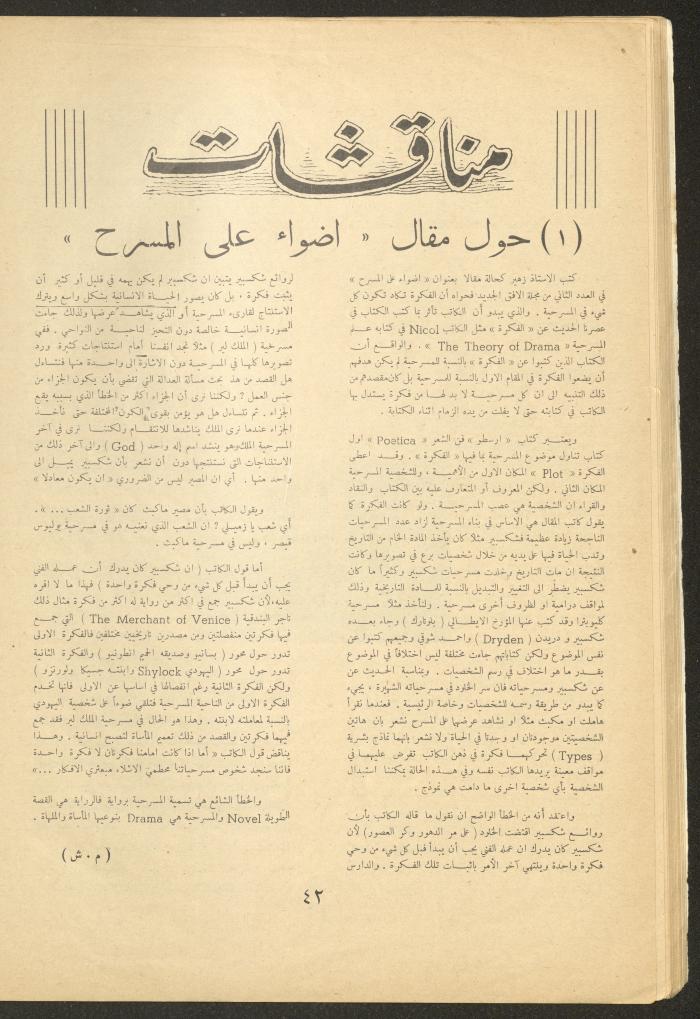 مناقشات
(١) حول مقال « اضواء على المسرح »
كتب الاستاذ زهير كحالة مقالا بعنوان « اضواء على المسرح »
في العدد الثاني من مجلة الافق الجديد فحواه أن الفكرة تكاد تكون كل
شيء في المسرحية . والذي يبدو أن الكاتب تأثر بما كتب الكتاب في
عصرنا الحديث عن « الفكرة » مثل الكاتب Nicol في كتابه عــلم
المسرحية « The Theory of Drama » . والواقــع أن
الكتاب الذين كتبوا عن « الفكرة » بالنسبة للمسرحية لم يكن هدفهم
أن يضعوا الفكرة في المقام الاول بالنسبة للمسرحية بل كان مقصدهم من
ذلك التنبيه الى ان كل مسرحيــة لا بد لهــا من فكرة يستدل بها
الكاتب في كتابته حتى لا يفلت من يده الزمام اثناء الكتابة .
ويعتــبر كتاب « ارسطو » فن الشعر « Poetica » اول
كتاب تناول موضوع المسرحية بما فيها « الفكرة » . وقــد اعطى
الفكرة « Plot » المكان الاول من الأهميــة ، وللشخصية المسرحية
المكان الثاني . ولكن المعروف أو المتعارف عليه بين الكتاب والنقاد
والقراء ان الشخصية هي عصب المسرحيــة . ولو كانت الفكرة كما
يقول كاتب المقال هي الاساس في بناء المسرحية لزاد عدد المسرحيات
الناجحة زيادة عظيمة فشكسبير مثلا كان يأخذ المادة الخام من التاريخ
وتدب الحياة فيها على يديه من خلال شخصيات برع في تصويرها وكانت
النتيجة ان مات التاريخ وخلدت مسرحيات شكسبير وكثيراً ما كان
شكسبير يضطر الى التغيير والتبديل بالنسبة للمــادة التاريخية وذلك
لمواقف درامية او لظروف أخرى مسرحية . ولنأخذ مثلا مسرحية
كليوبترا وقد كتب عنها المؤرخ الايطــالي ( بلوتارك ) وجاء بعــده
شكسبير و دريدن ( Dryden ) واحمــد شوقي وجميعهم كتبوا عن
نفس الموضوع ولكن كتاباتهم جاءت مختلفة ليس اختلافاً في الموضوع
بقــدر ما هو اختلاف في رسم الشخصيات . وبمناسبة الحديث عن
عن شكسبير ومسرحياته فان سر الخلود في مسرحياته الشهيرة ، يجيء
كما يبدو من طريقة رسمه للشخصيات وخاصة الرئيسية . فعندما نقرأ
هاملت او مكبث مثلا او نشاهد عرضها على المسرح نشعر بان هاتين
الشخصيتين موجودتان او وجدتا في الحياة ولا نشعر بانهما نماذج بشرية
( Types ) تحركهمــا فكرة في ذهن الكاتب تفرض عليهمــا في
مواقف معينة يريدها الكاتب نفسه وفي هــذه الحالة يمكننا استبدال
الشخصية بأي شخصية اخرى ما دامت هي نموذج .
واعتقد أنه من الخطأ الواضح ان نقول ما قاله الكاتب بأن
روائــع شكسبير اقتضت الخلود ( على مر الدهور وكر العصور ) لأن
شكسبير كان يدرك ان عمله الفني يجب أن يبدأ قبل كل شيء من وحي
فكرة واحدة وينتهي آخر الأمر باثبــات تلك الفكرة . والدارس
لروائع شكسبير يتبين ان شكسبير لم يكن يهمه في قليل أو كثير أن
يثبت فكرة ، بل كان يصور الحيــاة الانسانية بشكل واسع ويترك
الاستنتاج لقارىء المسرحية أو الذي يشاهــد عرضها ولذلك جاءت
الصورة انسانيــة خالصة دون التحيز لناحيــة من النواحي . ففي
مسرحية ( الملك لير ) مثلا نجد انفسنا أمام استنتاجات كثيرة ورد
تصويرها كلهــا في المسرحية دون الاشارة الى واحــدة منها فنتساءل
هل القصد من هذ بحث مسألة العدالة التي تقضي بأن يكون الجزاء من
جنس العمل ? ولكننا نرى أن الجزاء اكثر من الخطأ الذي بسببه يقع
الجزاء . ثم نتساءل هل هو يؤمن بقوى الكون المختلفة حتى نأخــذ
الجزاء عندما نرى الملك يناشدها للانتقــام ولكننــا نرى في آخر
المسرحية الملك وهو ينشد اسم إله واحد ( God ) والى آخر ذلك من
الاستنتاجات التي نستنتجها دون أن نشعر بأن شكسبير يميــل الى
واحد منها . أي ان المصير ليس من الضروري « ان يكون معادلا »
ويقول الكاتب بأن مصير ماكبث كان « ثورة الشعب ... » .
أي شعب يا زميلي ? ان الشعب الذي تعنيــه هو في مسرحية يوليوس
قيصر ، وليس في مسرحية ماكبث .
أما قول الكاتب ( ان شكسبير كان يدرك أن عمــله الفني
يجب أن يبدأ قبل كل شيء من وحي فكرة واحدة ) فهذا ما لا اقره
عليه ، لأن شكسبير جمع في اكثر من رواية له اكثر من فكرة مثال ذلك
تاجر البندقية ( The Merchant of Venice ) التي جمــع
فيها فكرتين منفصلتين ومن مصدرين تاريخيين مختلفين فالفكرة الاولى
تدور حول محور ( بسانيو وصديقه الحميم انطونيو ) والفكرة الثانية
تدور حول محور ( اليهودي Shylock وابنتــه جسيكا ولورنزو )
ولكن الفكرة الثانية رغم انفصالها في اساسها عن الاولى فانها تخــدم
الفكرة الاولى من الناحية المسرحية فتلقي ضوءاً على شخصية اليهودي
بالنسبة لمعاملته لابنته . وهذا هو الحال في مسرحية الملك لير فقد جمع
فيهما فكرتين والقصد من ذلك تعميم المأساة لتصبح انسانية . وهــذا
يناقض قول الكاتب « اما اذا كانت امامنا فكرتان لا فكرة واحــدة
فاننا سنجد شخوص مسرحياتنا محطمي الاشلاء مبعثري الافكار ... »
والخطأ الشائع هي تسمية المسرحية برواية فالرواية هي القصة
الطويلة Novel والمسرحية هي Drama بنوعيها المأساة والملهاة .
( م . ش )
٤٢